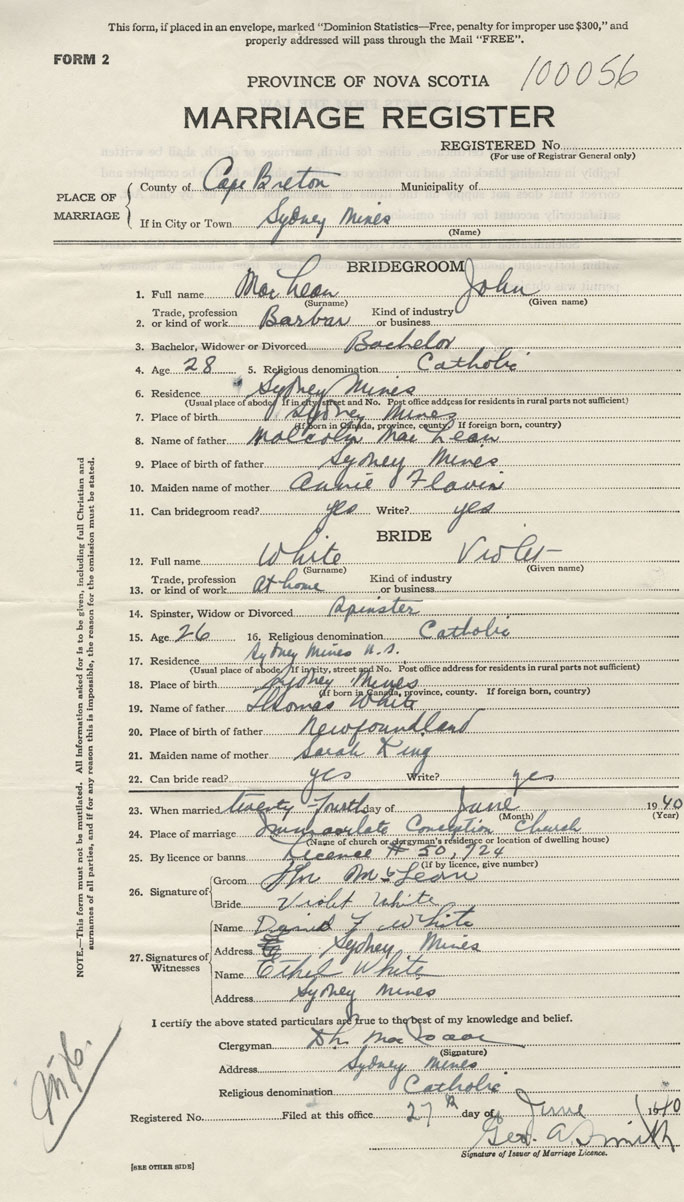 This form, if placed in an envelope, marked "Dominion Statistics—Free, penalty for improper use $300," and
properly addressed will pass through the Mail "FREE".
FORM 2
100056
PROVINCE OF NOVA SCOTIA
MARRIAGE REGISTER
REGISTERED No.
(For use of Registrar General only)
PLACE OF MARRIAGE
County of Cape Breton Municipality of
If in City or Town Sydney Mines
(Name)
BRIDEGROOM
1. Full name MacLean John
(Surname) (Given name)
2. Trade, profession or kind of work Barbar Kind of industry or business
3. Bachelor, Widower or Divorced Bachelor
4. Age 28 5. Religious denomination Catholic
6. Residence Sydney Mines
(Usual place of abode. If in city, street and No. Post office address for residents in rural parts not sufficient)
7. Place of birth Sydney Mines
(If born in Canada, province, county. If foreign born, country)
8. Name of father Malcolm MacLean
9. Place of birth of father Sydney Mines
10. Maiden name of mother Annie Flavin
11. Can bridegroom read? yes Write? yes
BRIDE
12. Full name White Violet
(Surname) (Given name)
13. Trade, profession or kind of work At home Kind of industry or business
14. Spinster, Widow or Divorced Spinster
15. Age 26 16. Religious denomination Catholic
17. Residence Sydney Mines N.S.
(Usual place of abode. If in city, street and No. Post office address for residents in rural parts not sufficient)
18. Place of birth Sydney Mines
(If born in Canada, province, county. If foreign born, country)
19. Name of father Thomas White
20. Place of birth of father Newfoundland
21. Maiden name of mother Sarah King
22. Can bride read? yes Write? yes
23. When married twenty-fourth day of June 1940
(Month) (Year)
24. Place of marriage Immaculate Conception Church
(Name of church or clergyman's residence or location of dwelling house)
25. By licence or banns Licence # 50,724
(If by licence, give number)
26. Signature of
Groom John McLean
Bride Violet White
27. Signatures of Witnesses
Name White
Address Sydney Mines
Name Ethel White
Address Sydney Mines
I certify the above stated particulars are true to the best of my knowledge and belief.
Clergyman
(Signature)
Address Sydney Mines
Religious denomination Catholic
Registered No. Filed at this office 27th day of June 1940
Geo. A. Smith
Signature of Issuer of Marriage Licence.
[SEE OTHER SIDE]
NOTE.—This form must not be mutilated. All information asked for is to be given, including full Christian and
surnames of all parties, and if for any reason this is impossible, the reason for the omission must be stated.